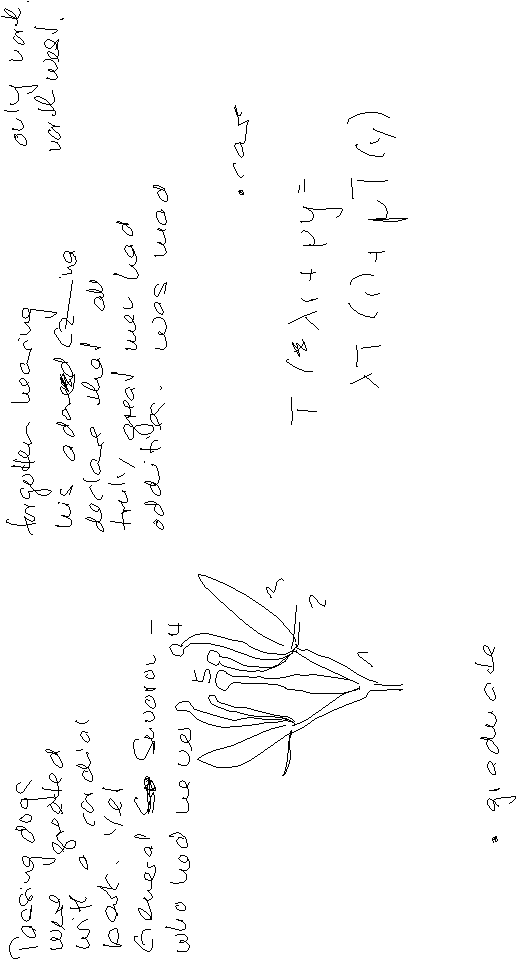 Passing dogs
were greeted
with a cordial
bark. Yet
General Suvorov -
who had never
forgotten hearing
his adored Cz-ina
declare that all
truly great men had
oddities. was mad
only
west.
4
5
3
2
1
T ( λx + μy =
λT (x) + μT (y)
• graduate